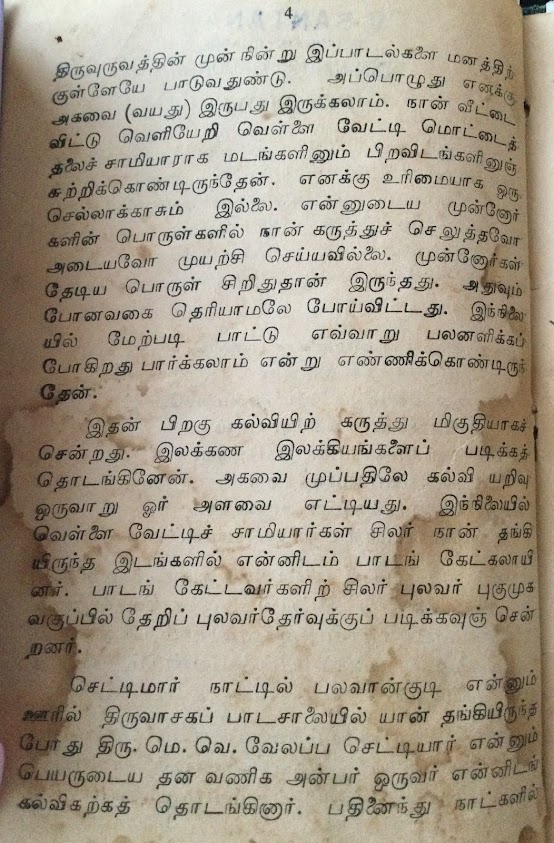 4
திருவுருவத்தின் முன் நின்று இப்பாடல்களை மனத்திற்
குள்ளேயே பாடுவதுண்டு. அப்பொழுது எனக்கு
அகவை (வயது) இருபது இருக்கலாம். நான் வீட்டை
விட்டு வெளியேறி வெள்ளை வேட்டி மொட்டைத்
தலைச் சாமியாராக மடங்களினும் பிறவிடங்களினுஞ்
சுற்றிக்கொண்டிருந்தேன். எனக்கு உரிமையாக ஒரு
செல்லாக்காசும் இல்லை. என்னுடைய முன்னோர்
களின் பொருள்களில் நான் கருத்துச் செலுத்தவோ
அடையவோ முயற்சி செய்யவில்லை. முன்னோர்கள்
தேடிய பொருள் சிறிதுதான் இருந்தது. அதுவும்
போனவகை தெரியாமலே போய்விட்டது. இந்நிலை
யில் மேற்படி பாட்டு எவ்வாறு பலனளிக்கப்
போகிறது பார்க்கலாம் என்று எண்ணிக்கொண்டிருந்
தேன்.
இதன் பிறகு கல்வியிற் கருத்து மிகுதியாகச்
சென்றது. இலக்கண இலக்கியங்களைப் படிக்கத்
தொடங்கினேன். அகவை முப்பதிலே கல்வி யறிவு
ஒருவாறு ஓர் அளவை எட்டியது. இந்நிலையில்
வெள்ளை வேட்டிச் சாமியார்கள் சிலர் நான் தங்கி
யிருந்த இடங்களில் என்னிடம் பாடங் கேட்கலாயி
னர். பாடங் கேட்டவர்களிற் சிலர் புலவர் புகுமுக
வகுப்பில் தேறிப் புலவர்தேர்வுக்குப் படிக்கவுஞ் சென்
றனர்.
செட்டிமார் நாட்டில் பலவான்குடி என்னும்
ஊரில் திருவாசகப் பாடசாலையில் யான் தங்கியிருந்த
போது திரு. மெ. வெ. வேலப்ப செட்டியார் என்னும்
பெயருடைய தன வணிக அன்பர் ஒருவர் என்னிடங்
கல்விகற்கத் தொடங்கினார். பதினைந்து நாட்களில்